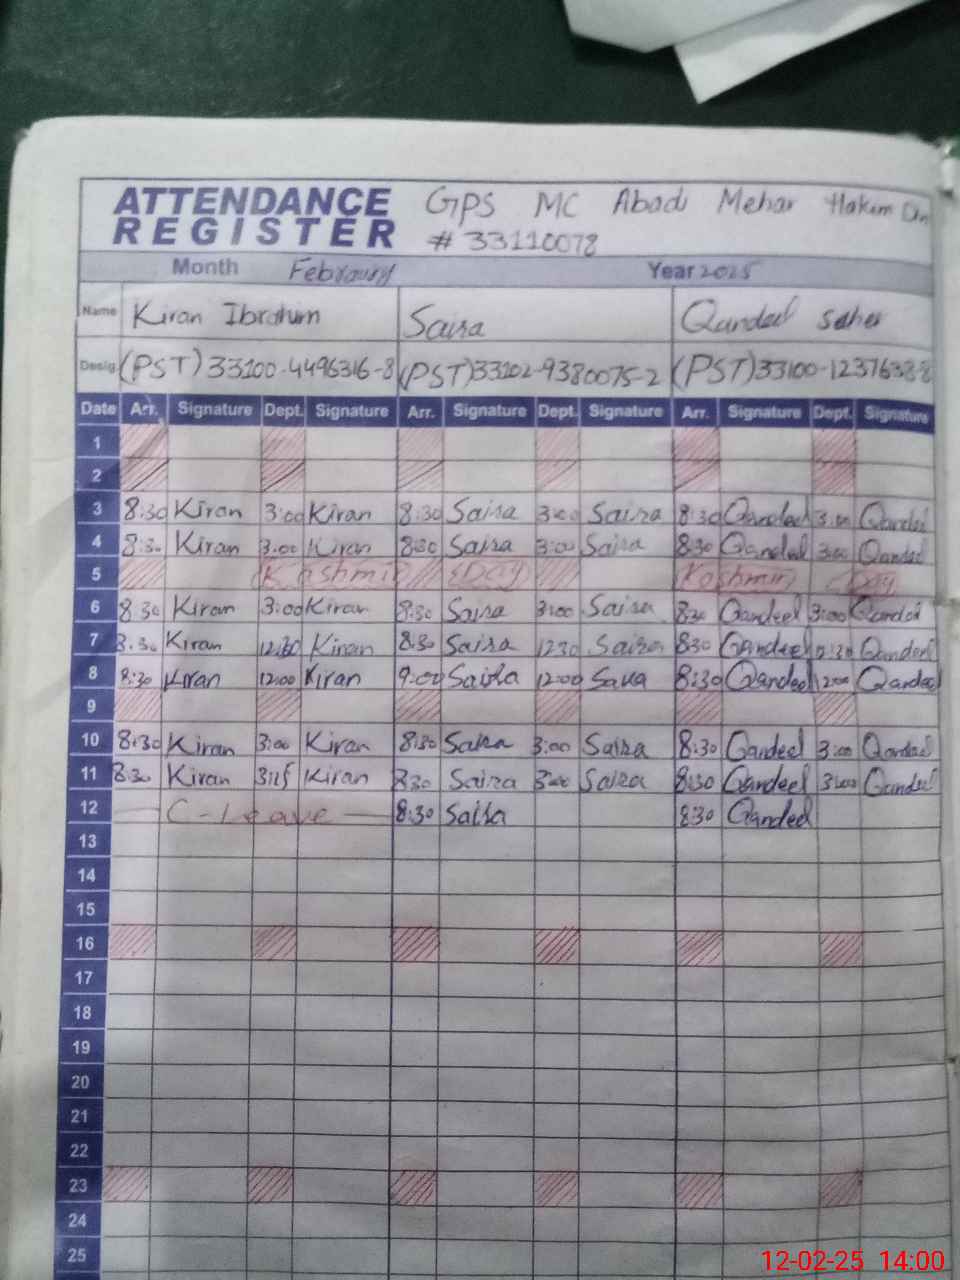 ATTENDANCE REGISTER
GPS MC Abadi Mehar Hakim Din
# 33110078
Month February Year 2025
Name Kiran Ibrahim Saira Qandeel Saher
Desig (PST) 33100-4496316-8 (PST) 33102-9380075-2 (PST)
Date Arr. Signature Dept. Signature Arr. Signature Dept. Signature Arr. Signature Dept. Signature
1
2
3 8:30 Kiran 3:00 Kiran 8:30 Saira 3:00 Saira 8:30 Qandeel 3:00 Qandeel
4 8:30 Kiran 3:00 Kiran 8:30 Saira 3:00 Saira 8:30 Qandeel 3:00 Qandeel
5 Kashmir Day Kashmir Day
6 8:30 Kiran 3:00 Kiran 8:30 Saira 3:00 Saira 8:30 Qandeel 3:00 Qandeel
7 8:30 Kiran 12:30 Kiran 8:30 Saira 12:30 Saira 8:30 Qandeel 12:30 Qandeel
8 8:30 Kiran 12:00 Kiran 9:00 Saira 12:00 Saira 8:30 Qandeel 12:00 Qandeel
9
10 8:30 Kiran 3:00 Kiran 8:30 Saira 3:00 Saira 8:30 Qandeel 3:00 Qandeel
11 8:30 Kiran 3:15 Kiran 8:30 Saira 3:00 Saira 8:30 Qandeel 3:00 Qandeel
12 C-Leave 8:30 Saira 8:30 Qandeel
13
14
15
16
17
18
19
20
21
22
23
24
25
12-02-25 14:00